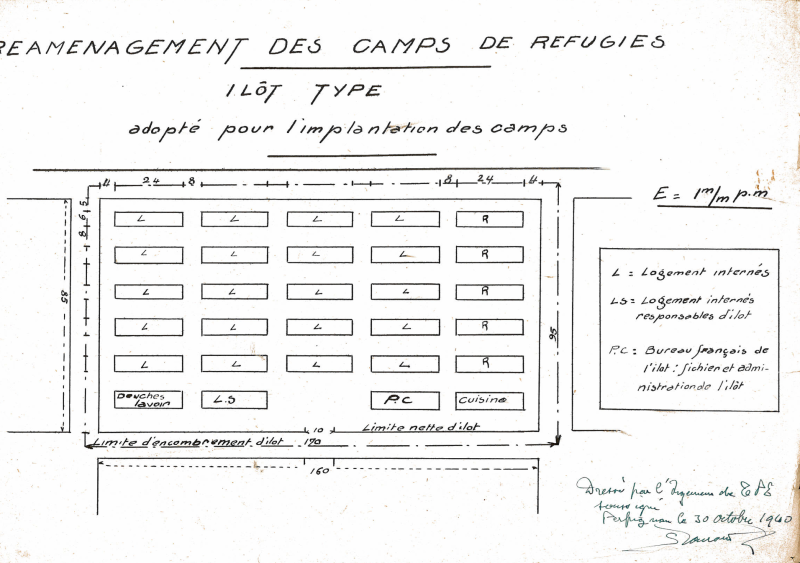 REAMENAGEMENT DES CAMPS DE REFUGIES
ILÔT TYPE
adopté pour l'implantation des camps
E = 1m/m p.m
4 24 8 8 24 4
5
6
8
85
95
L L L L R
L L L L R
L L L L R
L L L L R
L L L L R
Douches lavoir
L.S
P.C
Cuisine
10
Limite nette d'ilot
Limite d'encombrement d'ilot 170
160
L = Logement internés
LS = Logement internés
responsables d'ilot
P.C : Bureau français de
l'ilot : fichier et admi-
nistration de l'ilôt
Dressé par l'Ingénieur de TPE
soussigné
Perpignan le 30 Octobre 1940